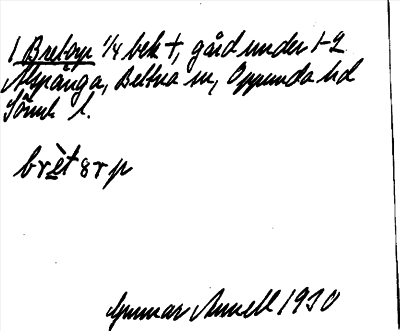 1 Bretorp 1/4 bek +, gård under 1-2
Aspånga, Bettna sn, Oppunda hd
Söml l.
brèt 8 r p
Gunnar 1930